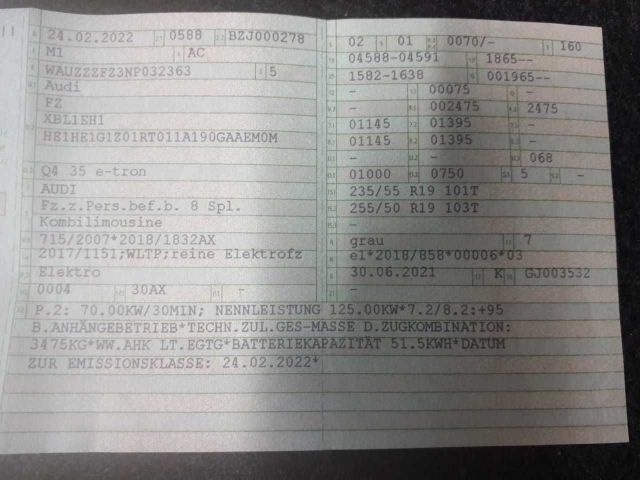 24.02.2022 0588 BZJ000278
M1 AC
WAUZZZFZ3NP032363 5
Audi
FZ
XBL1EH1
HE1HE1G1Z01RT011A190GAAEM0M
Q4 35 e-tron
AUDI
Fz.z.Pers.bef.b. 8 Spl.
Kombilimousine
715/2007*2018/1832AX
2017/1151;WLTP;reine Elektrofz
Elektro
0004 30AX -
02 01 0070/- 160
04588-04591 1865--
1582-1638 001965--
- 00075 -
- 002475 2475
01145 01395 -
01145 01395 -
- - 068
01000 0750 5 -
235/55 R19 101T
255/50 R19 103T
-
grau 7
e1*2018/858*00006*03
30.06.2021 K GJ003532
-
P.2: 70.00KW/30MIN; NENNLEISTUNG 125.00KW*7.2/8.2:+95
B.ANHÄNGEBETRIEB*TECHN.ZUL.GES-MASSE D.ZUGKOMBINATION:
3475KG*WW.AHK LT.EGTG*BATTERIEKAPAZITÄT 51.5KWH*DATUM
ZUR EMISSIONSKLASSE: 24.02.2022*